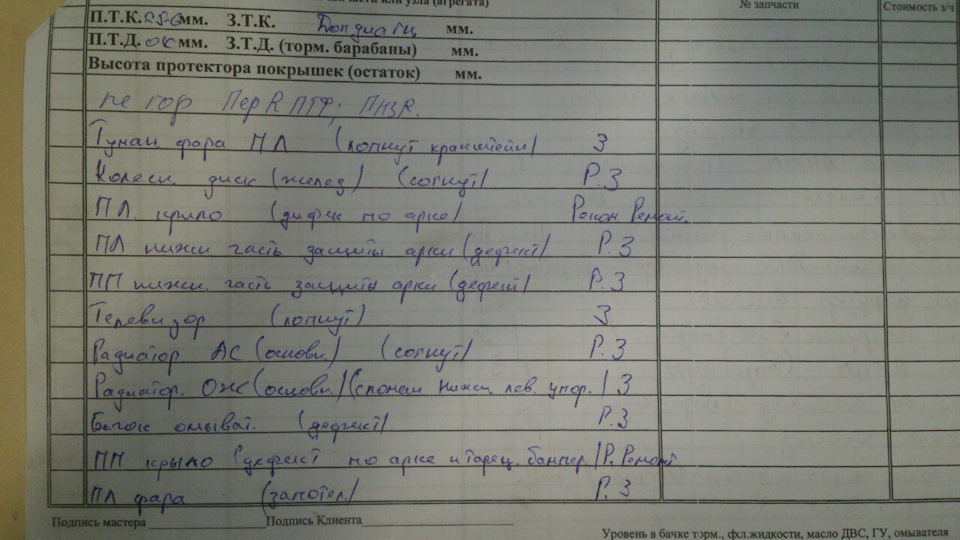 части или узла (агрегата) № запчасти Стоимость з/ч
П.Т.К. мм. З.Т.К. мм.
П.Т.Д. ок мм. З.Т.Д. (торм. барабаны) мм.
Высота протектора покрышек (остаток) мм.
не гор Пер R ПТФ; ПНЗR.
Туман. фара ПЛ (лопнут кранштейн) З
Колесн. диск (желез) (согнут) Р.З
ПЛ крыло (дефек по арке) Реком Ремонт.
ПЛ нижн часть защиты арки (дефект) Р.З
ПП нижн. часть защиты арки (дефект) Р.З
Телевизор (лопнут) З
Радиатор АС (основн.) (согнут) Р.З
Радиатор. ОЖ (основн.) (сломан нижн лев. упор.) З
Бачок омыват. (дефект) Р.З
ПП крыло (дефект по арке и торец. бампер) Р. Ремонт
ПЛ фара Р.З
Подпись мастера Подпись Клиента
Уровень в бачке тэрм., фхл.жидкости, масло ДВС, ГУ, омывателя